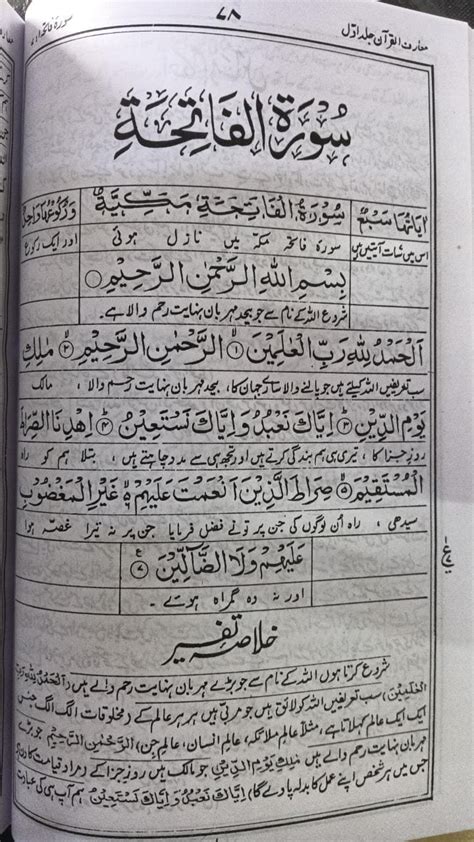 معارف القرآن جلد اوّل ۷۸ سورۂ فاتحہ ۱: ۷
سُوْرَةُ الْفَاتِحَةِ
اٰیَاتُهَا سَبْعٌ سُوْرَةُ الْفَاتِحَةِ مَكِّيَّةٌ وَّرُكُوْعُهَا وَاحِدٌ
اس میں سات آیتیں ہیں سورۂ فاتحہ مکہ میں نازل ہوئی اور ایک رکوع
بِسْمِ اللهِ الرَّحْمٰنِ الرَّحِيْمِ
شروع اللہ کے نام سے جو بیحد مہربان نہایت رحم والا ہے۔
اَلْحَمْدُ لِلّٰهِ رَبِّ الْعٰلَمِيْنَ ۱ الرَّحْمٰنِ الرَّحِيْمِ ۲ مٰلِكِ
سب تعریفیں اللہ کیلئے ہیں جو پالنے والا سارے جہان کا، بیحد مہربان نہایت رحم والا، مالک
يَوْمِ الدِّيْنِ ۳ اِيَّاكَ نَعْبُدُ وَاِيَّاكَ نَسْتَعِيْنُ ۴ اِهْدِنَا الصِّرَاطَ
روزِ جزا کا، تیری ہی ہم بندگی کرتے ہیں اور تجھی سے مدد چاہتے ہیں، بتلا ہم کو راہ
الْمُسْتَقِيْمَ ۵ صِرَاطَ الَّذِيْنَ اَنْعَمْتَ عَلَيْهِمْ ۶ غَيْرِ الْمَغْضُوْبِ
سیدھی، راہ اُن لوگوں کی جن پر تو نے فضل فرمایا جن پر نہ تیرا غصہ ہوا
عَلَيْهِمْ وَلَا الضَّآلِّيْنَ ۷
اور نہ وہ گمراہ ہوئے۔
خلاصہ تفسیر
شروع کرتا ہوں اللہ کے نام سے جو بڑے مہربان نہایت رحم والے ہیں (اَلْحَمْدُ لِلّٰهِ رَبِّ
الْعٰلَمِيْنَ) سب تعریفیں اللہ کو لائق ہیں جو مربی ہیں ہر ہر عالم کے (مخلوقات الگ الگ جنس
ایک ایک عالم کہلاتا ہے، مثلاً عالمِ ملائکہ، عالمِ انسان، عالمِ جن) الرَّحْمٰنِ الرَّحِيْمِ جو بڑے
مہربان نہایت رحم والے ہیں مٰلِكِ يَوْمِ الدِّيْنِ جو مالک ہیں روزِ جزا کے (مراد قیامت کا دن ہے
جس میں ہر شخص اپنے عمل کا بدلہ پاوے گا) اِيَّاكَ نَعْبُدُ وَاِيَّاكَ نَسْتَعِيْنُ ہم آپ ہی کی عبادت